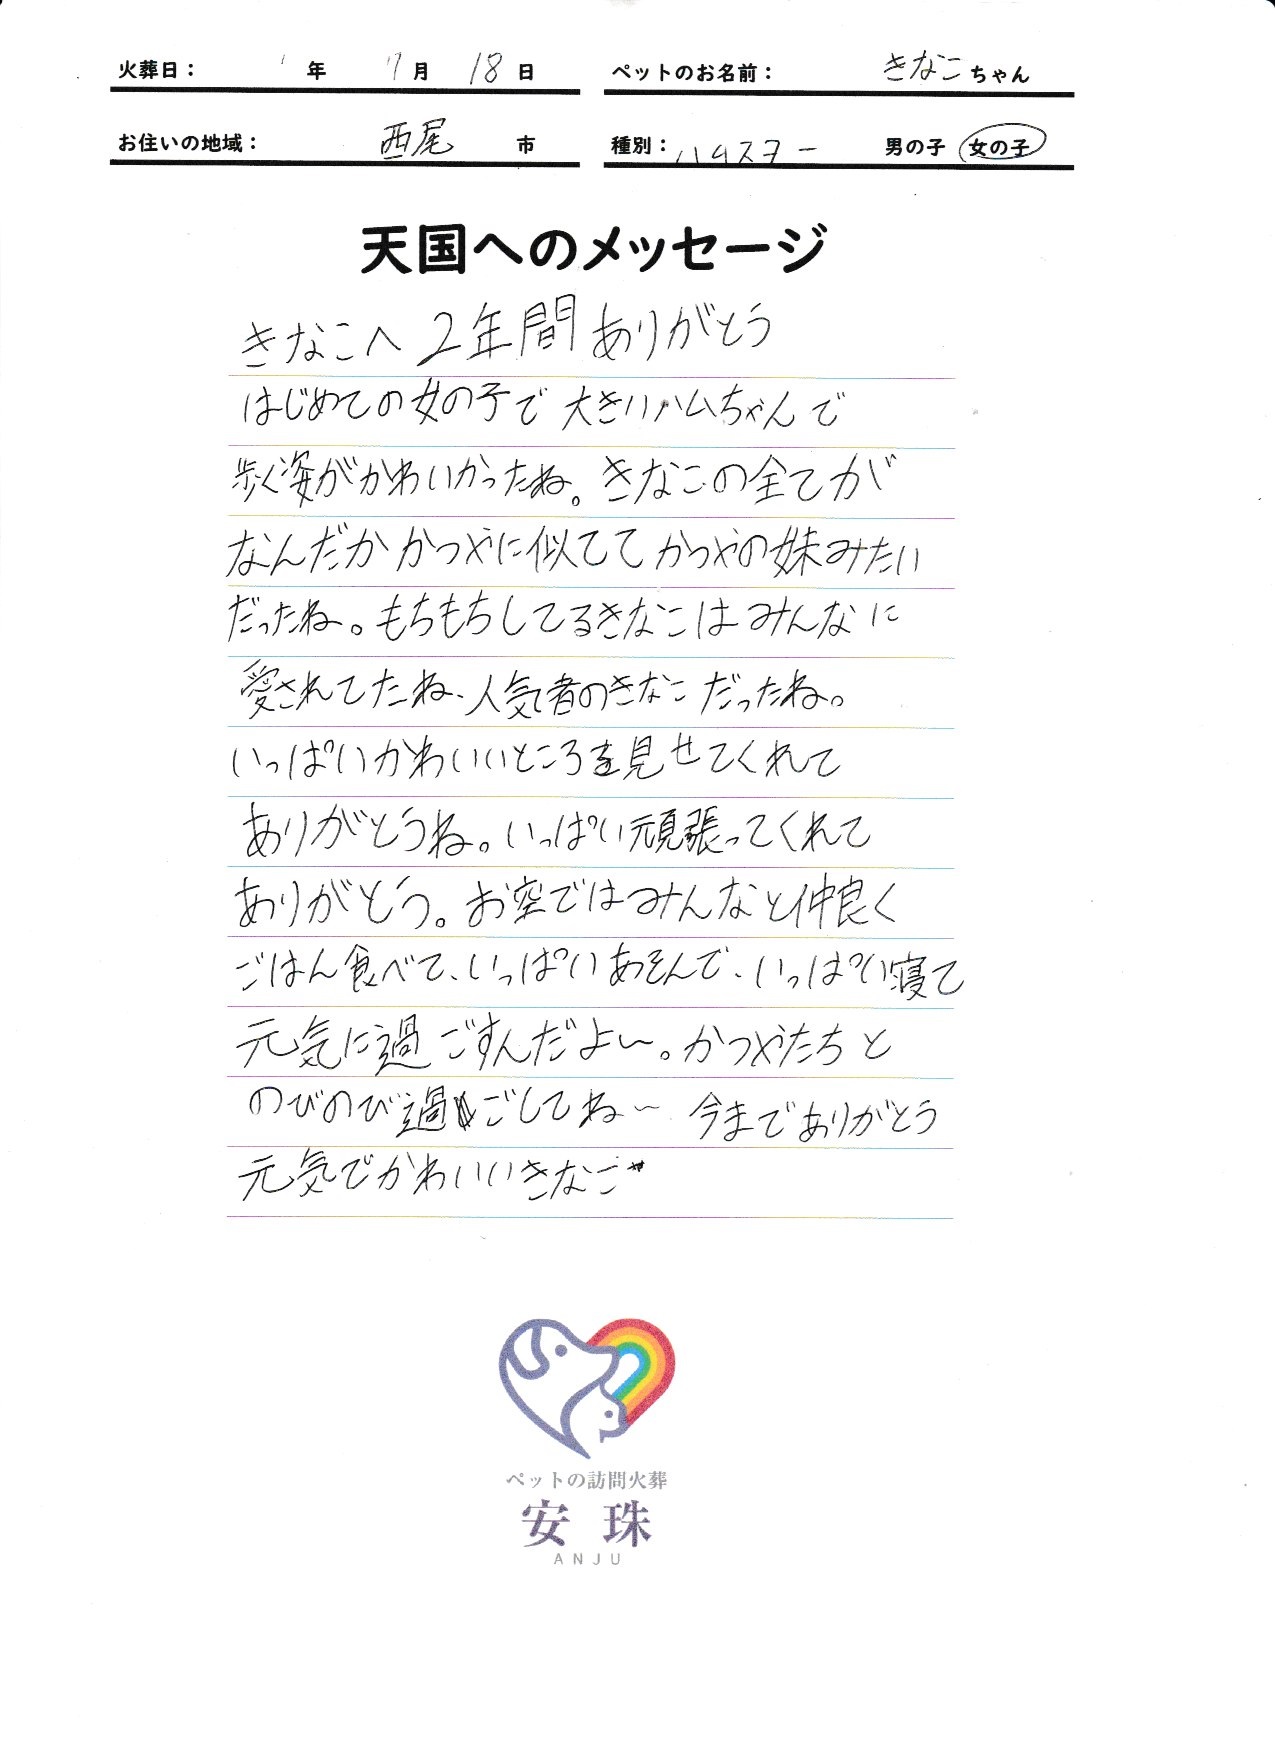 火葬日： 年 7月 18日
ペットのお名前： きなこちゃん
お住いの地域： 西尾 市
種別： ハムスター 男の子 女の子
天国へのメッセージ
きなこへ 2年間ありがとう
はじめての女の子で 大きいハムちゃんで
歩く姿がかわいかったね。きなこの全てが
なんだか かつやに似てて かつやの妹みたい
だったね。もちもちしてるきなこは みんなに
愛されてたね、人気者のきなこ だったね。
いっぱいかわいいところを見せてくれて
ありがとうね。いっぱい頑張ってくれて
ありがとう。お空ではみんなと仲良く
ごはん食べて、いっぱいあそんで、いっぱい寝て
元気に過ごすんだよ〜。かつやたちと
のびのび過ごしてね〜 今までありがとう
元気でかわいいきなこ
ペットの訪問火葬
安珠
ANJU